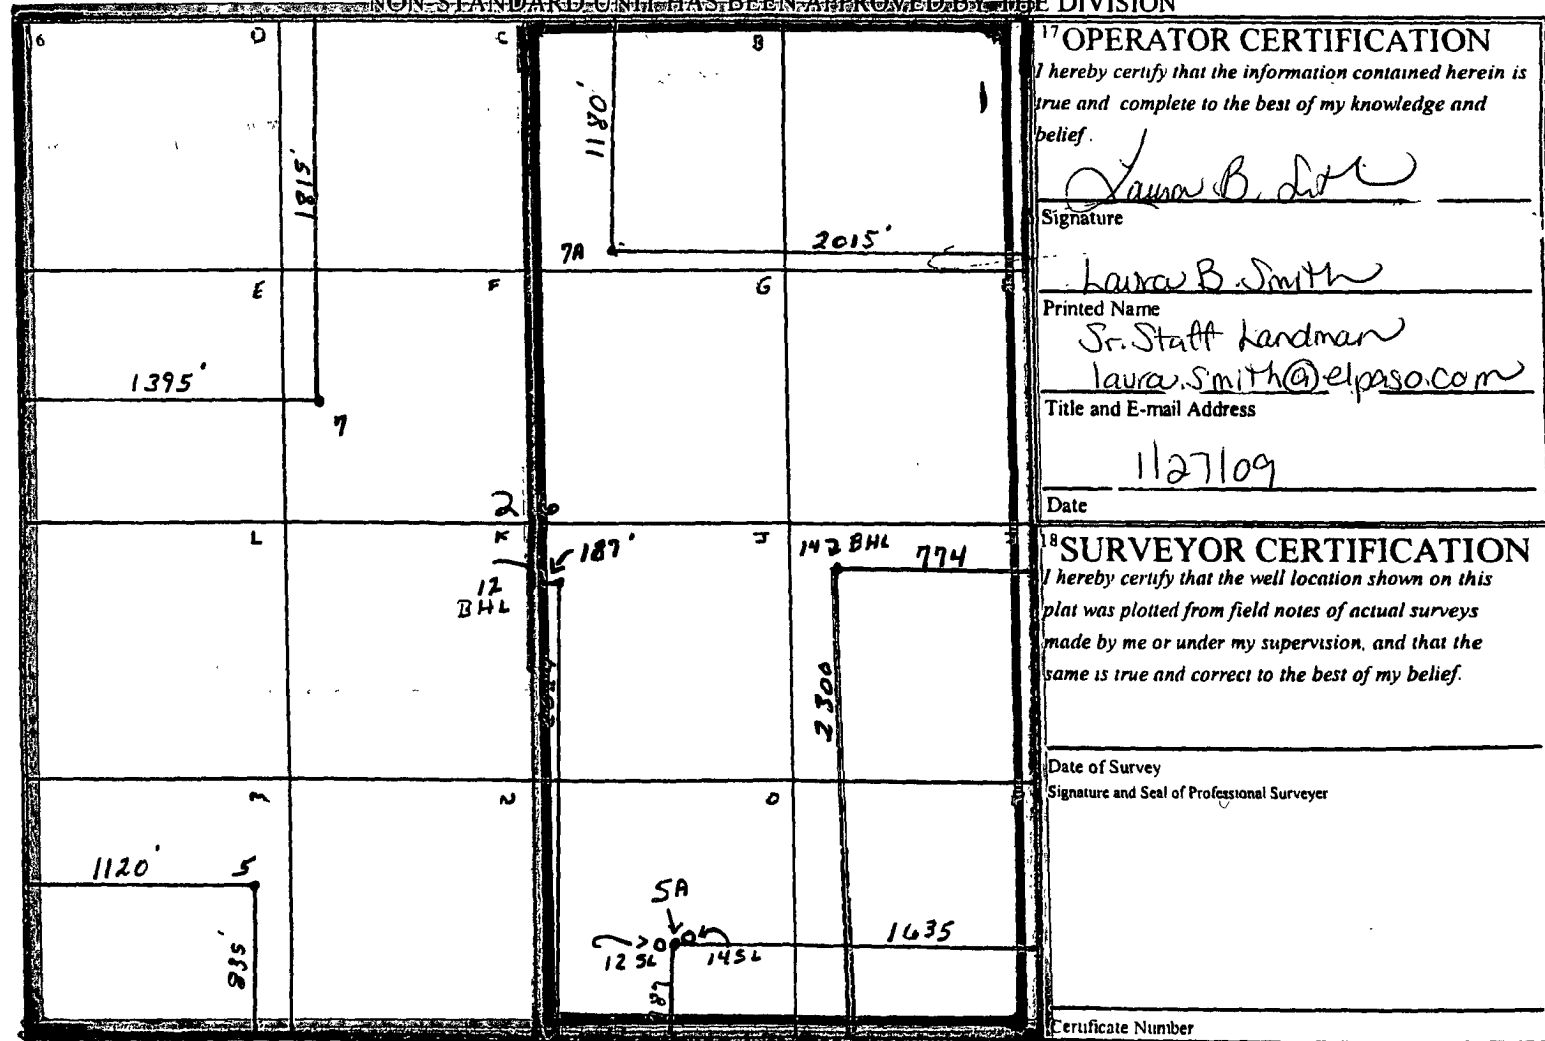 NON-STANDARD UNIT HAS BEEN APPROVED BY THE DIVISION
6
D
C
B
1
1815'
1180'
7A
2015'
E
F
G
1395'
7
2
L
K
187'
J
142 BHL
774
12
BHL
2300
N
O
1120'
5
835'
5A
12 SL
14SL
1635
17 OPERATOR CERTIFICATION
I hereby certify that the information contained herein is
true and complete to the best of my knowledge and
belief.
Laura B. Smith
Signature
Laura B. Smith
Printed Name
Sr. Staff Landman
laura.smith@elpaso.com
Title and E-mail Address
1/27/09
Date
18 SURVEYOR CERTIFICATION
I hereby certify that the well location shown on this
plat was plotted from field notes of actual surveys
made by me or under my supervision, and that the
same is true and correct to the best of my belief.
Date of Survey
Signature and Seal of Professional Surveyer
Certificate Number